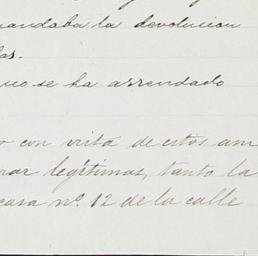 mandaba la devolucion
las.
no se ha arrendado
o con vista de estos am
rar legítimas, tanto la
casa nº 12 de la calle